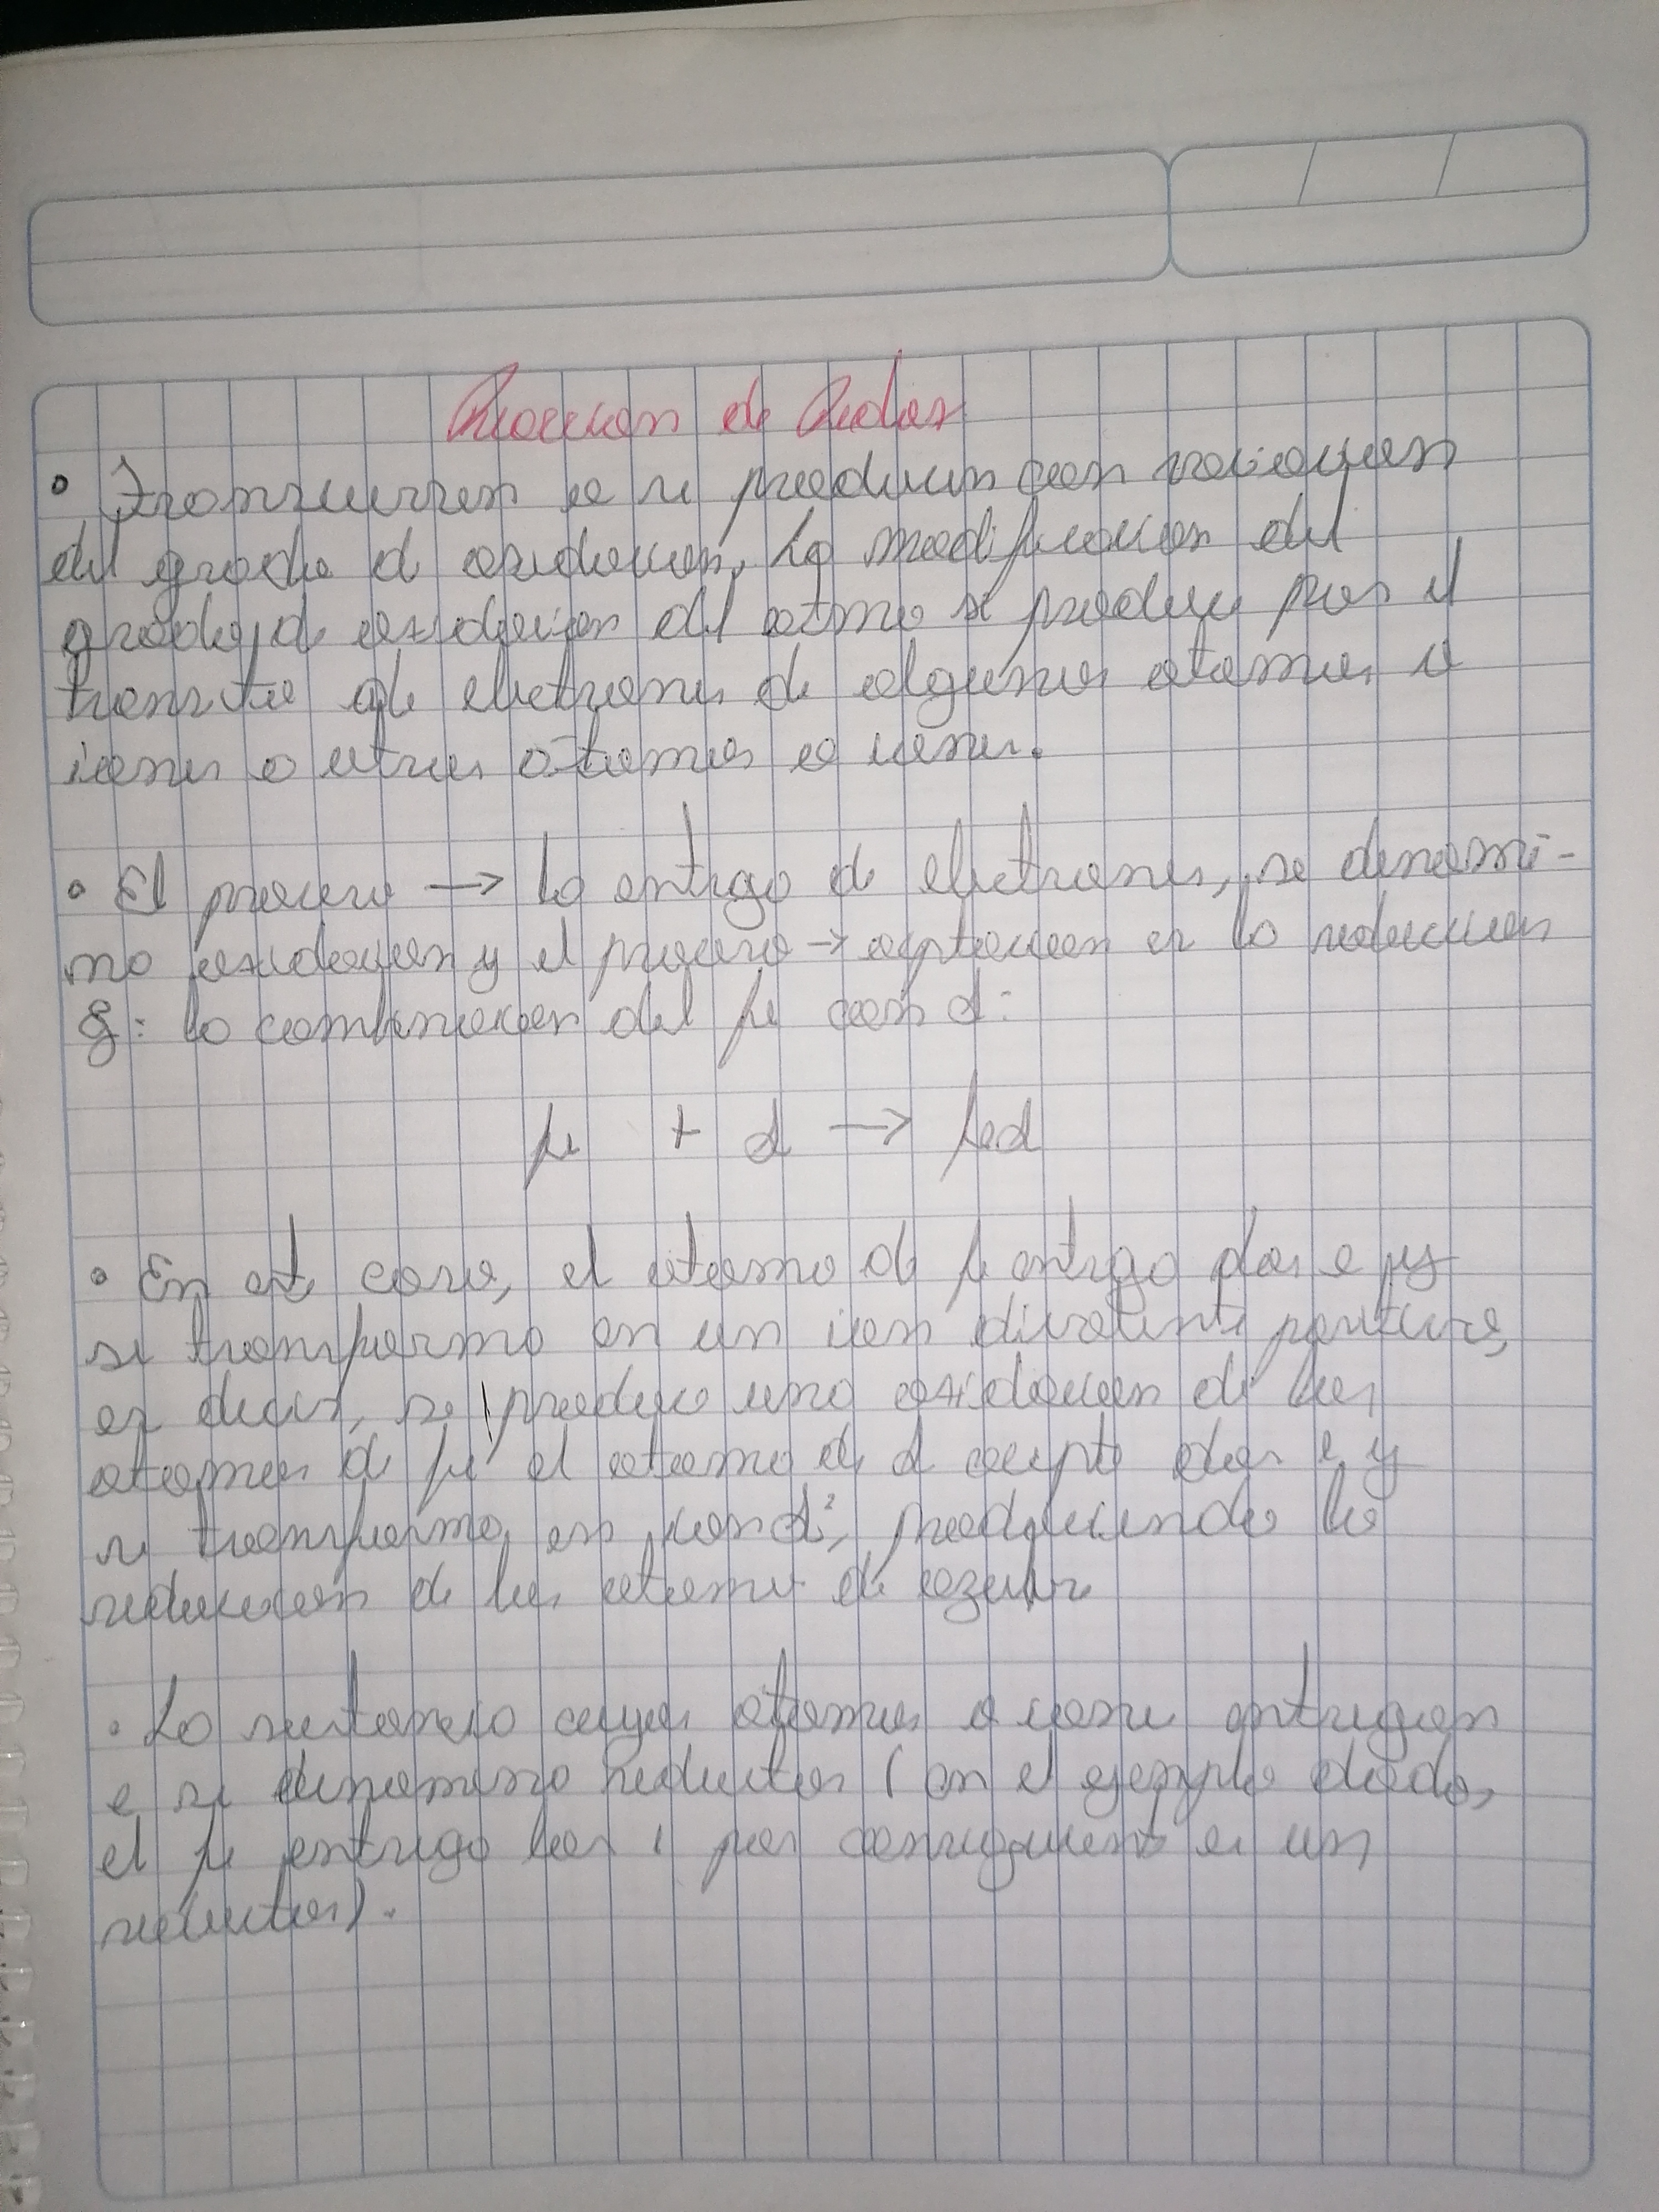 Reaccion de Redox
• Transcurren o se producen con variacion
del grado d oxidacion, La modificacion del
grado de oxidacion del atmo se produce por el
transito de electrones de algunos atomos o
iones a otros átomos o iones.
• El proceso → La entrega de electrones, se denomi-
na oxidacion y el proceso → aceptacion es la reducción
la combinacion del fe con d:
fe + d → fed
• En este caso, el atomo de fe entrega dos e y
se transforma en un ion divalente positivo,
es decir, se produce una oxidacion de los
atomos de fe el atomo de d acepta dos e y
se transforma en ion d², produciendo la
reduccion de los atomos de azufre
• La sustancia cuyos atomos o iones entregan
e se denomina reductor (en el ejemplo dado,
el fe entrega los e por consiguiente es un
reductor).